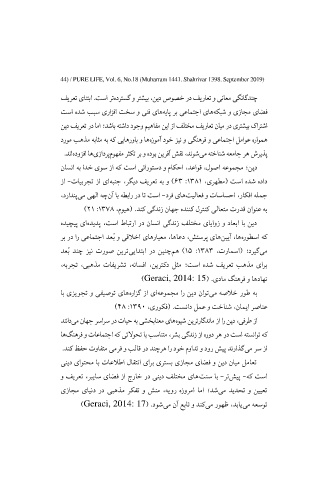 44) / PURE LIFE, Vol. 6, No.18 (Muharram 1441. Shahrivar 1398. September 2019)
چندگانگی معانی و تعاریف در خصوص دین، بیشتر و گسترده‌تر است. ابتنای تعریف
فضای مجازی و شبکه‌های اجتماعی بر پایه‌های فنی و سخت افزاری سبب شده است
اشتراک بیشتری در میان تعاریف مختلف از این مفاهیم وجود داشته باشد؛ اما در تعریف دین
همواره عوامل اجتماعی و فرهنگی و نیز خود آموزه‌ها و باورهایی که به مثابه مذهب مورد
پذیرش هر جامعه شناخته می‌شوند، نقش آفرین بوده و بر تکثر مفهوم‌پردازی‌ها افزوده‌اند.
دین؛ مجموعه اصول، قواعد، احکام و دستوراتی است که از سوی خدا به انسان
داده شده است (مطهری، ۱۳۸۱: ۶۳) و به تعریف دیگر، جنبه‌ای از تجربیات- از
جمله افکار، احساسات و فعالیت‌های فرد- است تا در رابطه با آن‌چه الهی می‌پندارد،
به عنوان قدرت متعالی کنترل کننده جهان زندگی کند. (هیوم، ۱۳۷۸: ۲۱)
دین با ابعاد و زوایای مختلف زندگی انسان در ارتباط است، پدیده‌ای پیچیده
که اسطوره‌ها، آیین‌های پرستش، دعاها، معیارهای اخلاقی و بُعد اجتماعی را در بر
می‌گیرد؛ (اسمارت، ۱۳۸۳: ۱۵) هم‌چنین در ابتدایی‌ترین صورت نیز چند بُعد
برای مذهب تعریف شده است: مثل دکترین، افسانه، تشریفات مذهبی، تجربه،
نهادها و فرهنگ مادی. (Geraci, 2014: 15)
به طور خلاصه می‌توان دین را مجموعه‌ای از گزاره‌های توصیفی و تجویزی با
عناصر ایمان، شناخت و عمل دانست. (فکوری، ۱۳۹۰: ۴۸)
از طرفی، دین را از ماندگارترین شیوه‌های معنابخشی به حیات در سراسر جهان می‌دانند
که توانسته است در هر دوره از زندگی بشر، متناسب با تحولاتی که اجتماعات و فرهنگ‌ها
از سر می‌گذارند پیش رود و تداوم خود را هرچند در قالب و فرمی متفاوت حفظ کند.
تعامل میان دین و فضای مجازی بستری برای انتقال اطلاعات با محتوای دینی
است که- پیش‌تر- با سنت‌های مختلف دینی در خارج از فضای سایبر، تعریف و
تعیین و تحدید می‌شد؛ اما امروزه رویه، منش و تفکر مذهبی در دنیای مجازی
توسعه می‌یابد، ظهور می‌کند و تابع آن می‌شود. (Geraci, 2014: 17)